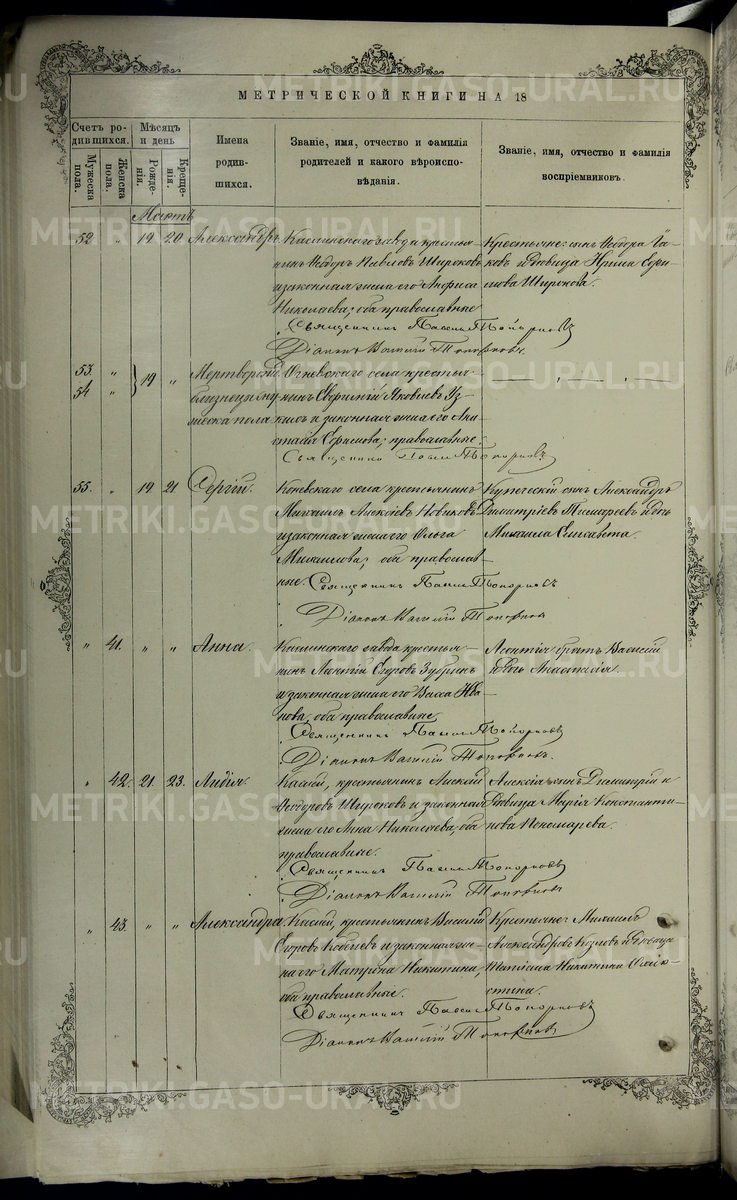 МЕТРИЧЕСКОЙ КНИГИ НА 18
Счетъ родившихся.
Мужеска пола.
Женска пола.
Мѣсяцъ и день
Рожденія.
Крещенія.
Имена родившихся.
Званіе, имя, отчество и фамилія родителей и какого вѣроисповѣданія.
Званіе, имя, отчество и фамилія воспріемниковъ.
Мартъ
52 " 19 20 Александръ.
Каслинскаго завода крестья-
нинъ Ѳеодоръ Павловъ Широковъ
и законная жена его Анфиса
Николаева; оба православные
Священникъ Топорковъ
Діаконъ Топорковъ.
Крестьяне: сынъ Ѳеодора
ковъ и девица
Широкова.
53. "
54 "
19 "
Мертворожд.
близнецы
мужеска пола
Огневскаго села крестья-
нинъ Яковлевъ
и законная жена его Ана-
стасія Ефимова; православные.
Священникъ Топорковъ
55. " 19 21 Сергій.
Коневскаго села крестьянинъ
Михаилъ Алексіевъ Новиковъ
и законная жена его Ольга
Михаилова; оба православ-
ные. Священникъ Топорковъ
Діаконъ Топорковъ
Купеческій сынъ Александръ
Димитріевъ и дочь
Михаила Елисавета.
" 41. " " Анна.
Каслинскаго завода крестья-
нинъ Леонтій Егоровъ Зубринъ
и законная жена его Васса Ива-
нова; оба православные
Священникъ Топорковъ
Діаконъ Топорковъ.
Леонтія братъ Василій
и дочь Анастасія.
" 42. 21. 23. Лидія.
Каслин, крестьянинъ Алексій
Ѳеодоровъ Широковъ и законная
жена его Анна Николаева; оба
православные.
Священникъ Топорковъ
Діаконъ Топорковъ
Алексія сынъ Димитрій и
девица Марія Константи-
нова Пономарева.
" 43. " " Александра.
Каслин, крестьянинъ Василій
Егоровъ и законная же-
на его Матрона Никитина;
оба православные.
Священникъ Топорковъ
Діаконъ Топорковъ
Крестьяне: Михаилъ
Александровъ Козловъ и девица
Никитина
METRIKI.GASO-URAL.RU